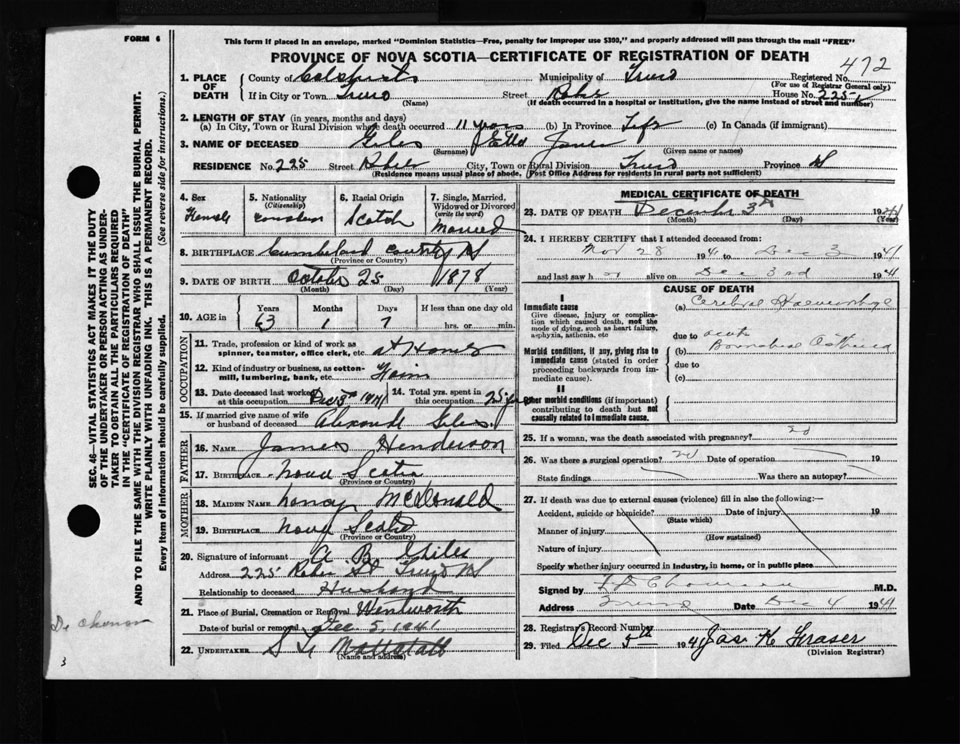 FORM 6
This form if placed in an envelope, marked "Dominion Statistics—Free, penalty for improper use $300," and properly addressed will pass through the mail "FREE"
PROVINCE OF NOVA SCOTIA—CERTIFICATE OF REGISTRATION OF DEATH
472
1. PLACE OF DEATH County of Colchester Municipality of Truro Registered No.
(For use of Registrar General only)
If in City or Town Truro Street House No. 225
(Name) (If death occurred in a hospital or institution, give the name instead of street and number)
2. LENGTH OF STAY (in years, months and days)
(a) In City, Town or Rural Division where death occurred 11 years (b) In Province Life (c) In Canada (if immigrant)
3. NAME OF DECEASED Giles Etta Jane
(Surname) (Given name or names)
RESIDENCE No. 225 Street City, Town or Rural Division Truro Province NS
(Residence means usual place of abode. (Post Office Address for residents in rural parts not sufficient)
4. Sex Female
5. Nationality (Citizenship) Canadian
6. Racial Origin Scotch
7. Single, Married, Widowed or Divorced (write the word) Married
8. BIRTHPLACE Cumberland County NS
(Province or Country)
9. DATE OF BIRTH October 25 1878
(Month) (Day) (Year)
10. AGE in Years Months Days If less than one day old
63 1 7 hrs. or min.
OCCUPATION
11. Trade, profession or kind of work as spinner, teamster, office clerk, etc. at Home
12. Kind of industry or business, as cotton-mill, lumbering, bank, etc.
13. Date deceased last worked at this occupation Dec 3rd 1941 14. Total yrs. spent in this occupation
15. If married give name of wife or husband of deceased Giles
FATHER
16. NAME James Henderson
17. BIRTHPLACE Nova Scotia
(Province or Country)
MOTHER
18. MAIDEN NAME Nancy McDonald
19. BIRTHPLACE Nova Scotia
(Province or Country)
20. Signature of informant A B Giles
Address 225 St Truro NS
Relationship to deceased Husband
21. Place of Burial, Cremation or Removal Wentworth
Date of burial or removal Dec 5, 1941
22. UNDERTAKER Mattatall
(Name and address)
MEDICAL CERTIFICATE OF DEATH
23. DATE OF DEATH December 3rd 1941
(Month) (Day) (Year)
24. I HEREBY CERTIFY that I attended deceased from:
Nov 28 1941 to Dec 3 1941
and last saw h alive on Dec 3rd 1941
CAUSE OF DEATH
I
Immediate cause
Give disease, injury or complication which caused death, not the mode of dying, such as heart failure, asphyxia, asthenia, etc
(a) Cerebral Haemorrhage
due to
Morbid conditions, if any, giving rise to immediate cause (stated in order proceeding backwards from immediate cause).
(b) Bronchial Asthma
due to
(c)
II
Other morbid conditions (if important) contributing to death but not causally related to immediate cause.
25. If a woman, was the death associated with pregnancy? no
26. Was there a surgical operation? no Date of operation 19
State findings Was there an autopsy?
27. If death was due to external causes (violence) fill in also the following:—
Accident, suicide or homicide? Date of injury 19
(State which)
Manner of injury
(How sustained)
Nature of injury
Specify whether injury occurred in industry, in home, or in public place
Signed by M.D.
Address Truro Date Dec 4 1941
28. Registrar's Record Number
29. Filed Dec 5th 1941 Jas. K Fraser
(Division Registrar)
SEC. 46—VITAL STATISTICS ACT MAKES IT THE DUTY
OF THE UNDERTAKER OR PERSON ACTING AS UNDER-
TAKER TO OBTAIN ALL THE PARTICULARS REQUIRED
IN THE "CERTIFICATE OF REGISTRATION OF DEATH"
AND TO FILE THE SAME WITH THE DIVISION REGISTRAR WHO SHALL ISSUE THE BURIAL PERMIT.
WRITE PLAINLY WITH UNFADING INK. THIS IS A PERMANENT RECORD.
Every item of information should be carefully supplied. (See reverse side for instructions.)
3